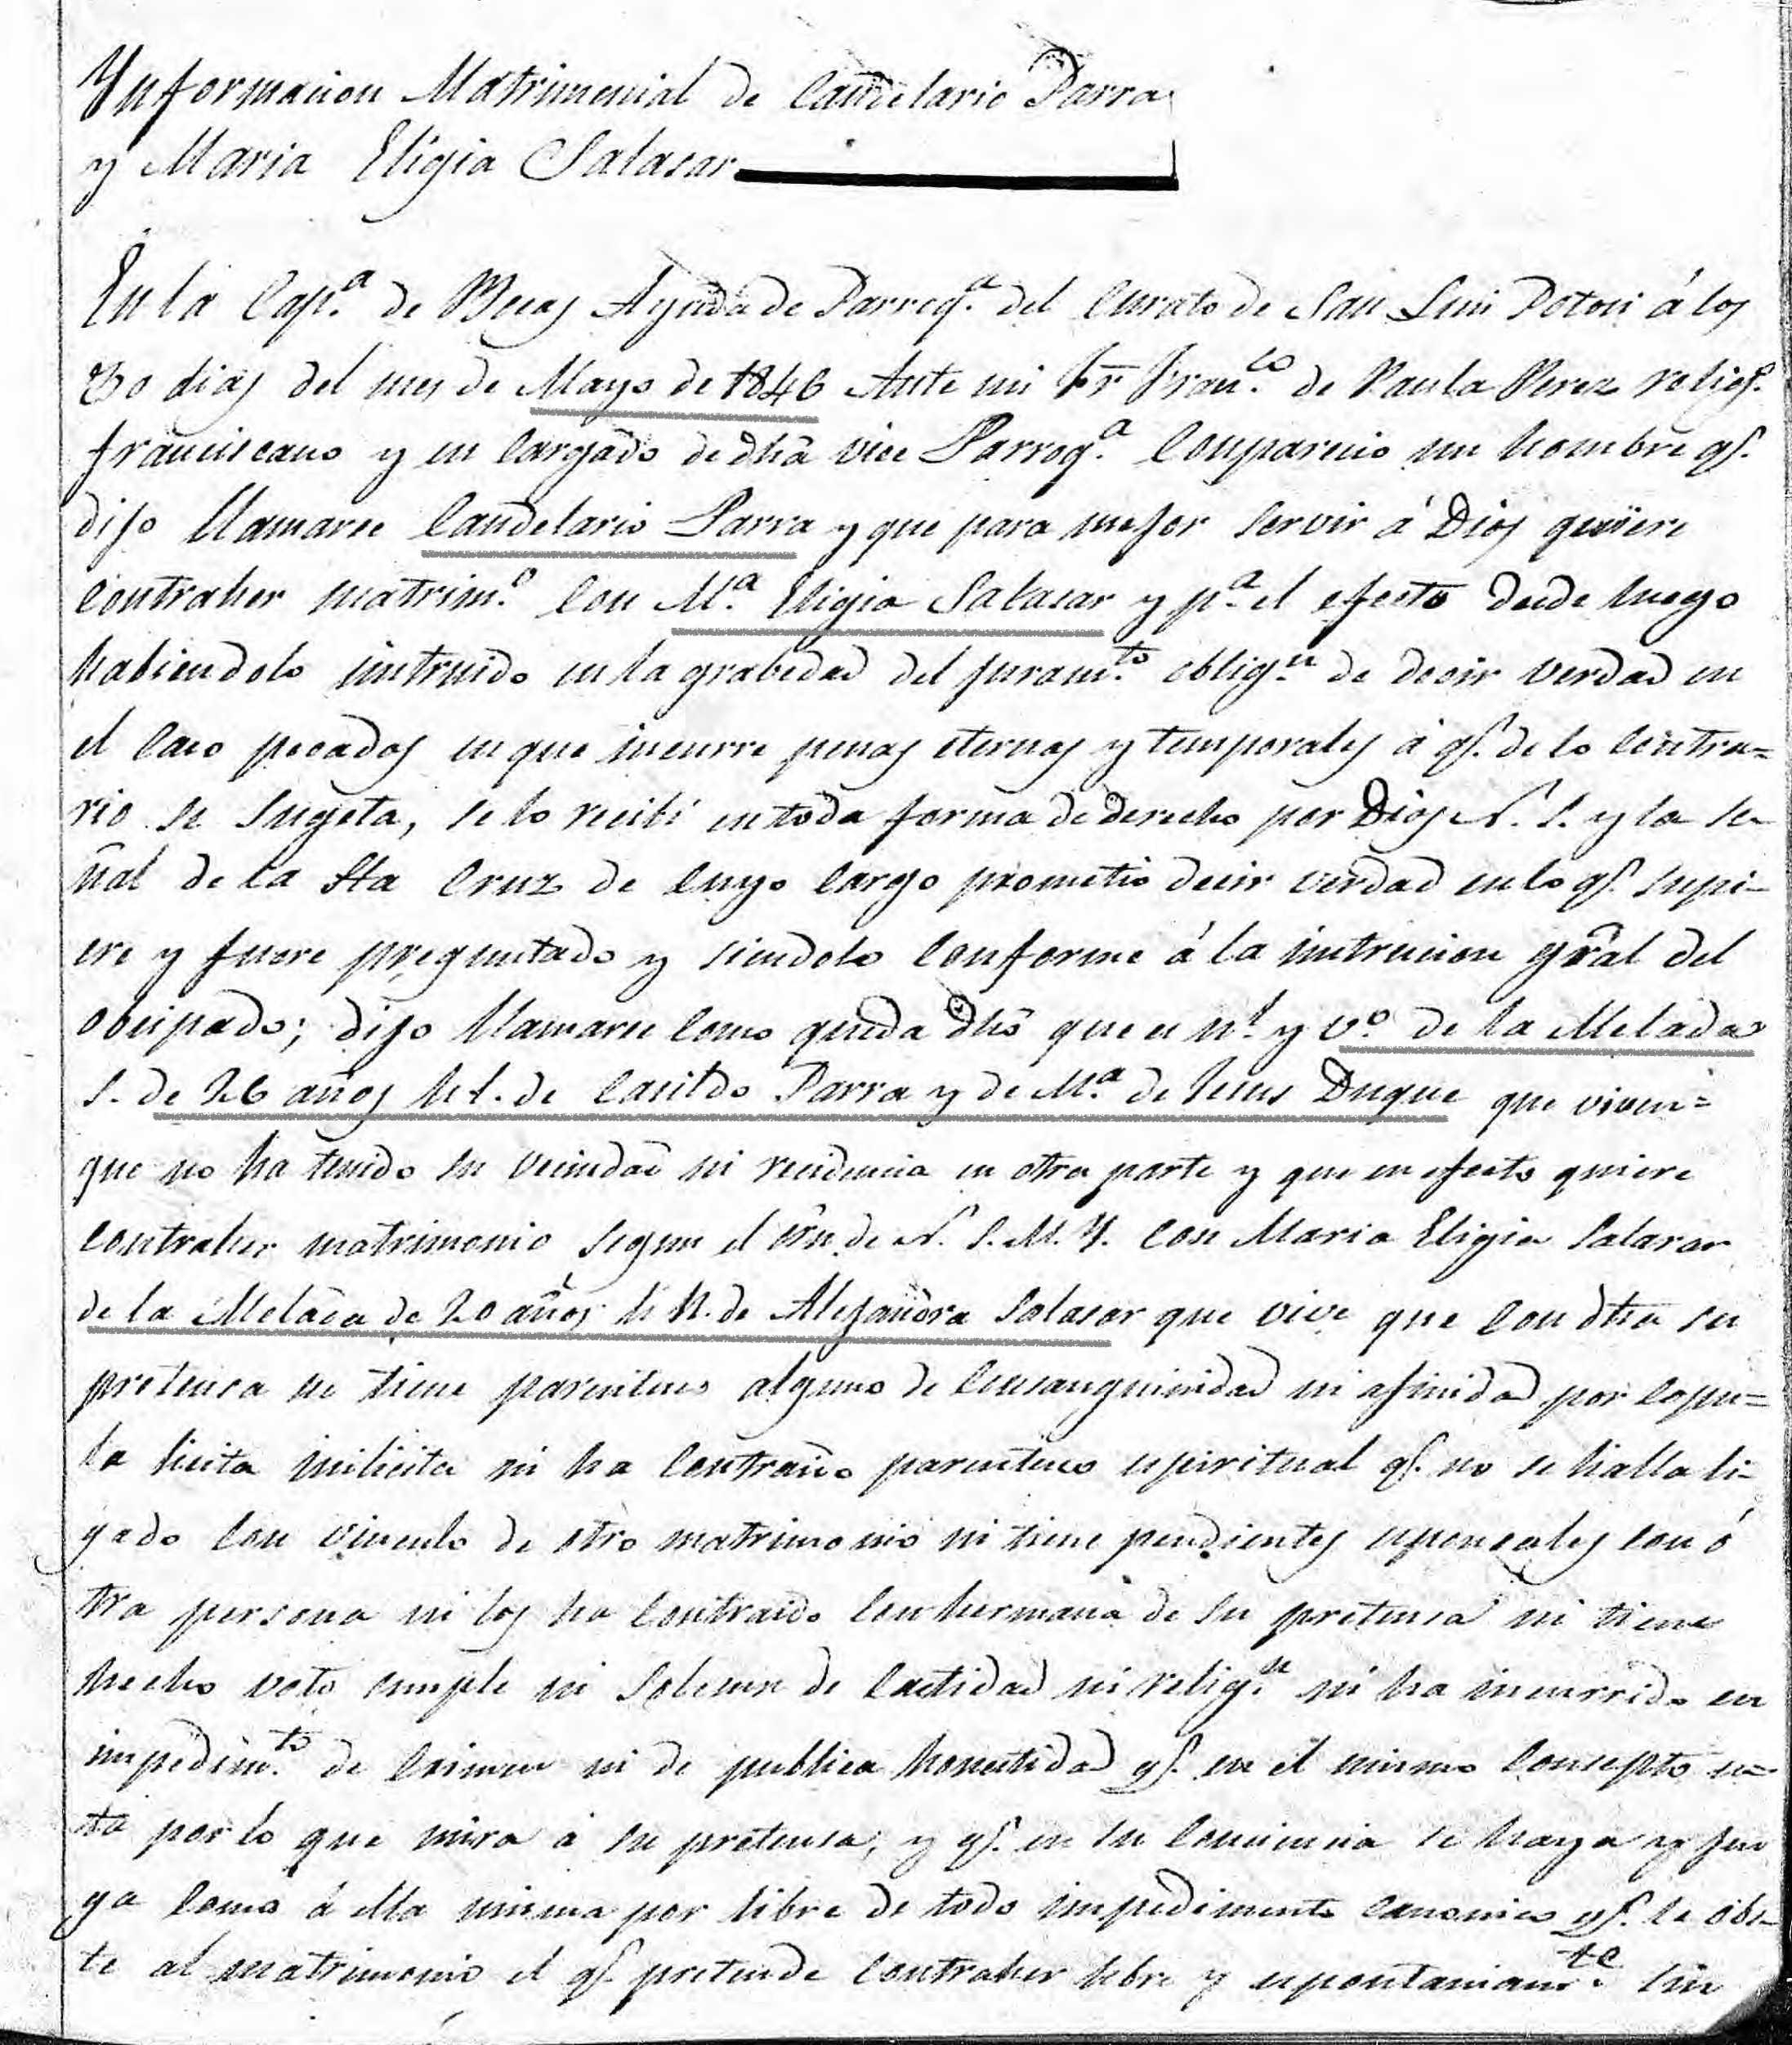 Ynformacion Matrimonial de Candelario Parra
y Maria Eligia Salasar
En la Cap.ª de Mecas Ayuda de Parroq.ª del Curato de San Luis Potosi á los
30 dias del mes de Mayo de 1846 Ante mi Fr Fran.co de Paula Perez religs.º
franciscano y encargado de dha vice Parroq.ª Comparecio un hombre q.e
dijo llamarse Candelario Parra y que para mejor servir á Dios quiere
contraher matrim.º con M.ª Eligia Salasar y p.ª el efecto desde luego
habiendolo instruido en la grabedad del juram.to oblig.n de decir verdad en
el caso pecados en que incurre penas eternas y temporales á q.e de lo contra=
rio se sugeta, se lo recibi en toda forma de derecho por Dios N. S. y la se
ñal de la Sta Cruz de cuyo cargo prometió decir verdad en lo q.e supi-
ere y fuere preguntado y siendolo conforme á la instrucion gral del
obispado; dijo llamarse como queda dho que es n.l y v.º de la Melada
S. de 26 años h. l. de Casildo Parra y de M.ª de Jesus Duque que viven=
que no ha tenido su vecindad ni residencia en otra parte y que en efecto quiere
contraher matrimonio segun el orn. de N. S. M. Y. con Maria Eligia Salasar
de la Melada de 20 años h. N. de Alejandra Salasar que vive que con dha su
pretensa no tiene parentesco alguno de consanguinidad ni afinidad por copu=
la licita inilicita ni ha contraido parentesco espiritual q.e no se halla li-
gado con vinculo de otro matrimonio ni tiene pendientes esponsales con ó
tra persona ni los ha contraido con hermana de su pretensa ni tiene
hecho voto simple ni solemne de castidad ni relig.n ni ha incurrido en
impedim.to de crimen ni de publica honestidad q.e en el mismo consepto es-
ta por lo que mira á su pretensa, y q.e en su conciencia se haya y jus
ga como á ella misma por libre de todo impedimento canonico q.e le obs-
te al matrimonio el q.e pretende contraher libre y espontaniam.te sin